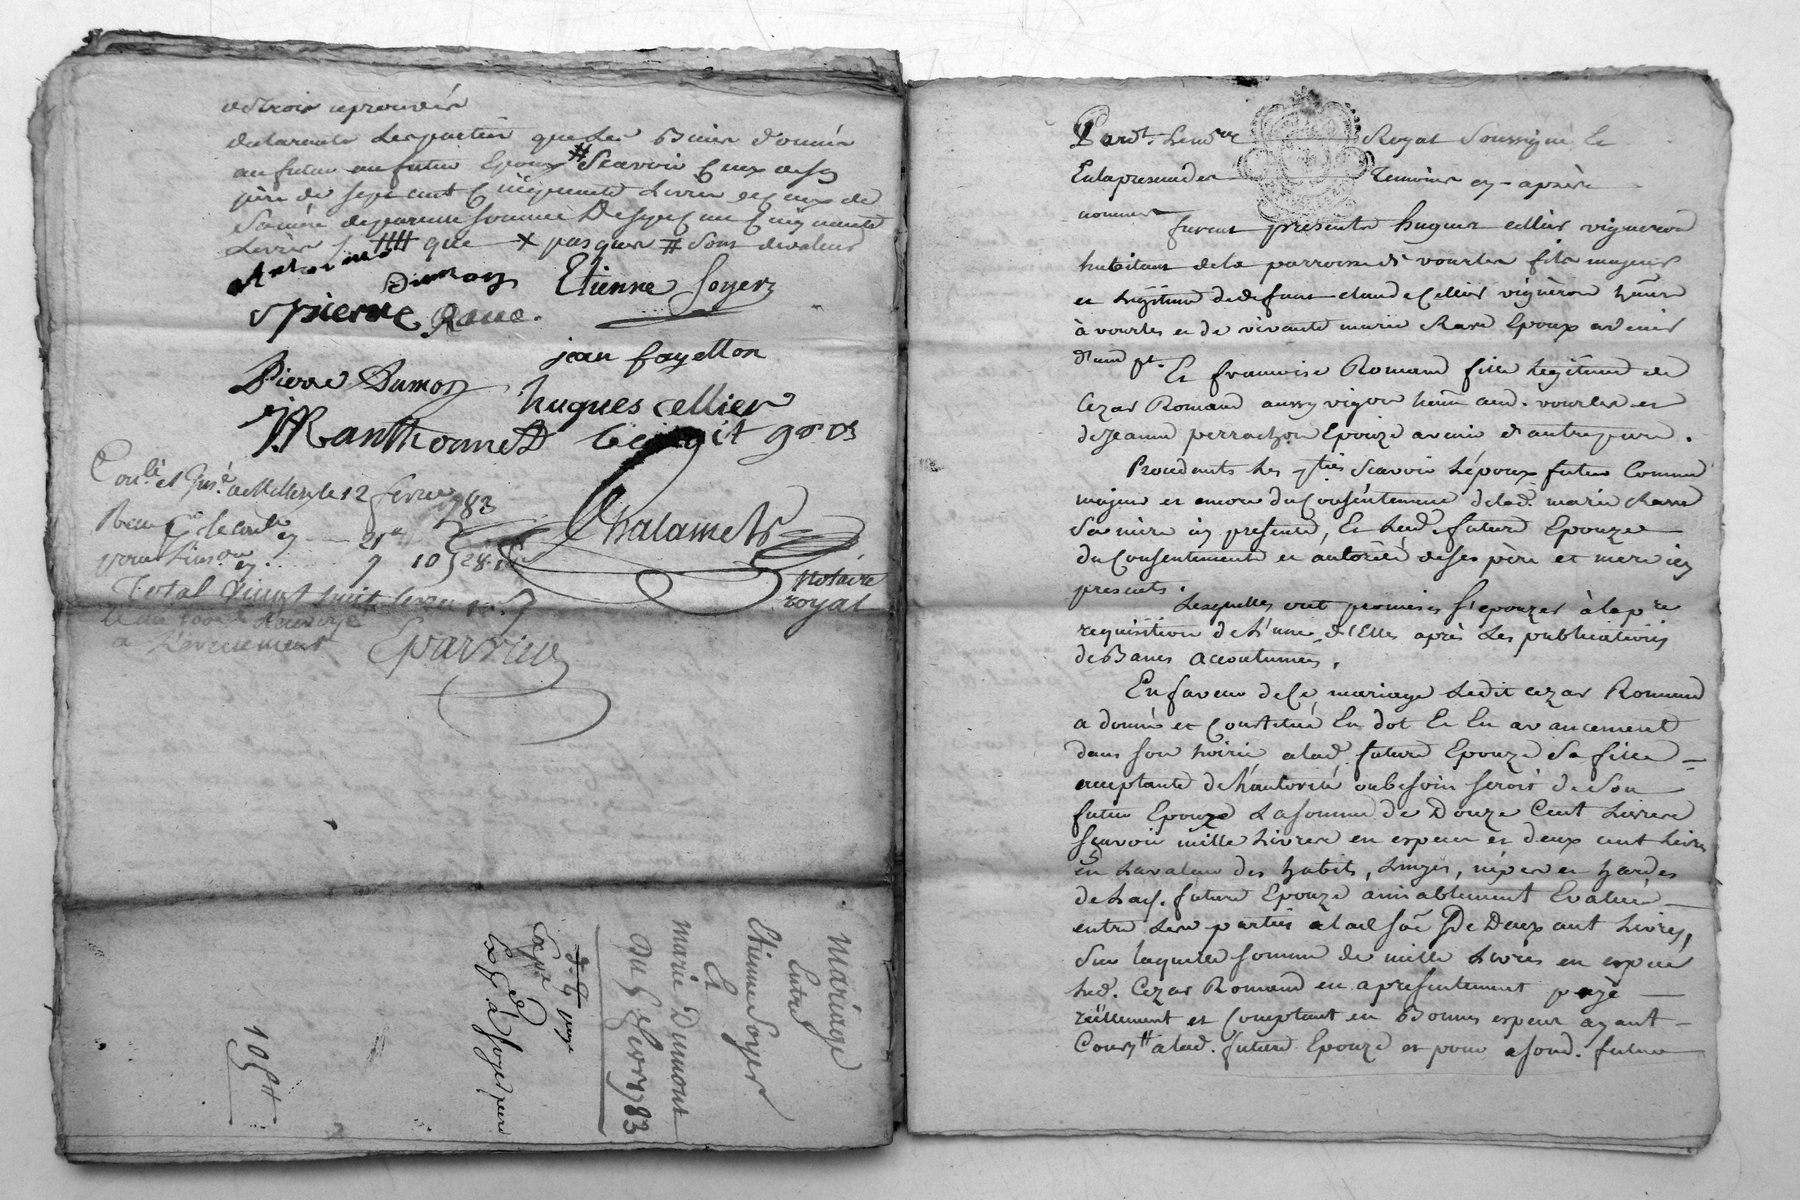 et trois aprouvés
declarants Les parties que Les Biens donnés
au futur Epoux # Scavoir Ceux de son
père de sept cent Cinquante Livres et Ceux de
Sa mère de pareille somme De sept Cent Cinquante
Livres que pas que # Sont de valeur
Antoine Dumon Etienne Soyer
Pierre Rave.
jean fayetton
Pierre Dumon hugues cellier
JM Ranthonnet benoit
Con.lé et Jns.é à Millery le 12 fevrier 1783
Reçu
pour Lins.on 9 10
Total Vingt huit Livres
Chalamel
Notaire
royal
a L'évenement Eparvier
Mariage
Entre
Etienne Soyer
Et
marie Dumont
Du 9 fevrier 83
Expé
Exp.d à Soyer pere
10 5#
Pard.t Le no.re Royal Soussigné Et
En la presence des Temoins cy-après
nommés
furent présents hugues cellier vigneron
habitant de la parroisse de vourles fils majeur
et légitime de defunt claude Cellier vigneron
à vourles et de vivante marie Rave Epoux avenir
d'une pt. Et francoise Romand fille legitime de
Cezar Romand aussy vigneron aud. vourles et
de Jeanne perrachon Epouze avenir d'autre part.
Procedants Les pties Scavoir L'époux futur Comme
majeur et encore du Consentement de lad. marie Rave
Sa mère icy presente, Et Lad. future Epouze
du Consentement et autorité de ses père et mere icy
presents.
Lesquelles ont promises S'epouzer à la p.re
requisition de L'une d'Elles après Les publications
de Bancs accoutumées.
En faveur de Ce mariage Ledit cezar Romand
a donné et Constitué En dot Et En avancement
dans son hoirie à lad. future Epouze Sa fille
acceptante de L'autorité où besoin seroit de Son
futur Epoux La somme de Douze Cent Livres
Scavoir mille Livres en especes et deux cent Livres
en La valeur des habits, Linges, nipes et hardes
de Lad. future Epouze amiablement Evalués
entre Les parties à lad. Soe De Deux cent Livres,
Sur laquelle somme de mille Livres en especes
Led. Cezar Romand en a presentement payé
réellement et Comptant en Bonnes especes ayant
Cours # à lad. future Epouze et pour future